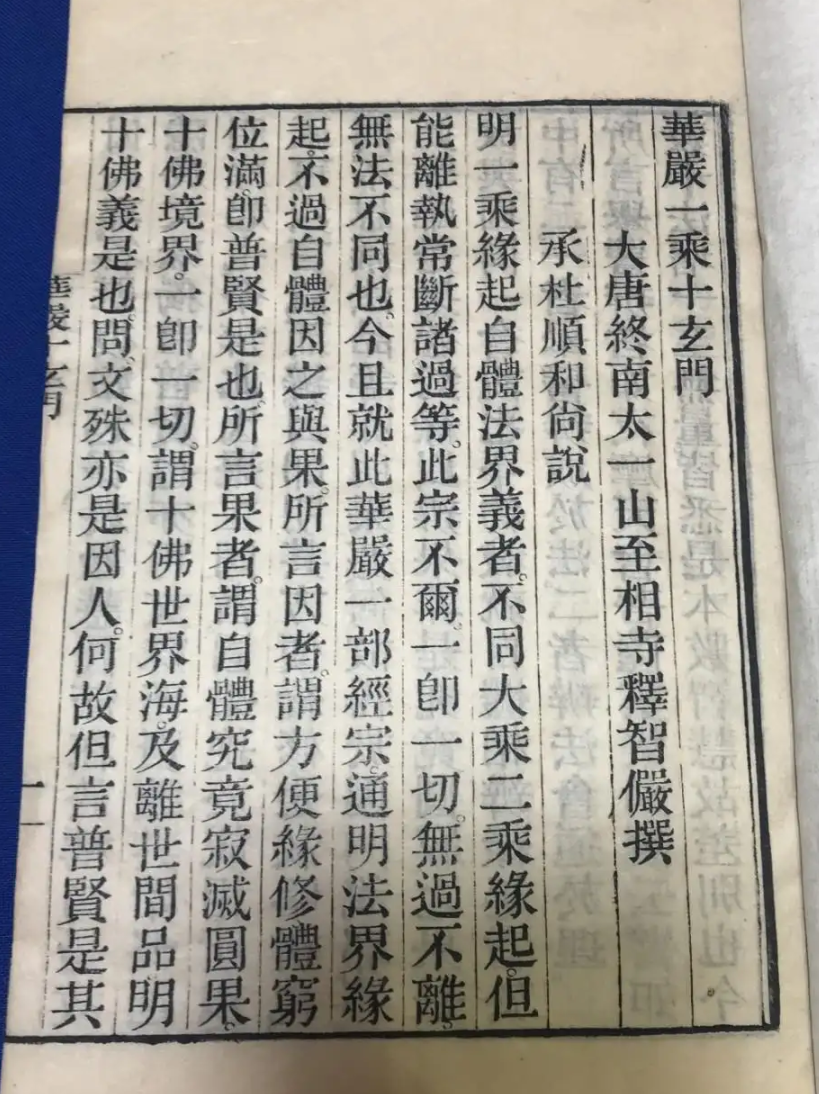 華嚴一乘十玄門
大唐終南太一山至相寺釋智儼撰
承杜順和尚說
明一乘緣起自體法界義者。不同大乘二乘緣起。但
能離執常斷諸過等。此宗不爾。一卽一切。無過不離。
無法不同也。今且就此華嚴一部經宗。通明法界緣
起。不過自體因之與果。所言因者。謂方便緣修體窮
位滿。卽普賢是也所言果者。謂自體究竟寂滅圓果。
十佛境界。一卽一切。謂十佛世界海。及離世間品明
十佛義是也。問。文殊亦是因人。何故但言普賢是其
華嚴十玄門
一